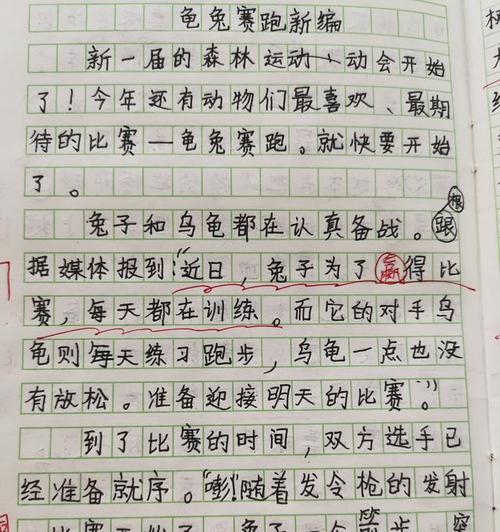 龟兔赛跑新编
新一届的森林运动小动会开始
了！今年还有动物们最喜欢、最期
待的比赛—龟兔赛跑。就快要开始
了。
兔子和乌龟都在认真备战。跟根
据媒体报到：“近日，兔子为了赢得比
赛，每天都在训练。而它的对手乌
龟则每天练习跑步，乌龟一点也没
有放松。准备迎接明天的比赛。”
到了比赛的时间，双方选手已
经准备就序。“嘭！”随着发令枪的发射